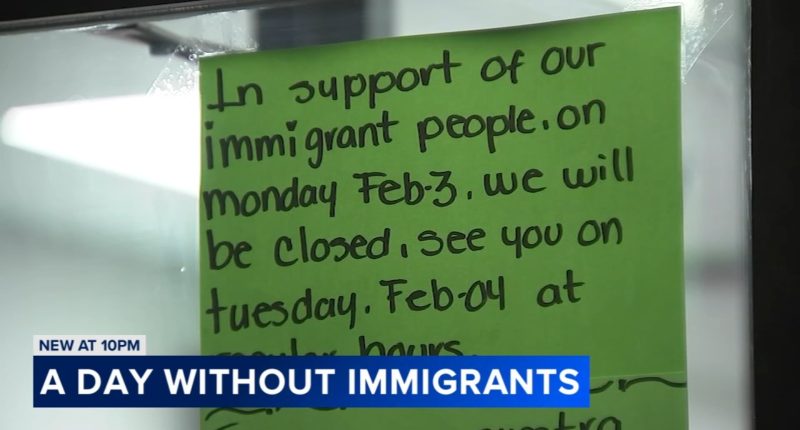 In support of our
immigrant people, on
monday Feb-3, we will
be closed, see you on
tuesday, Feb-04 at
regular hours.
NEW AT 10PM
A DAY WITHOUT IMMIGRANTS